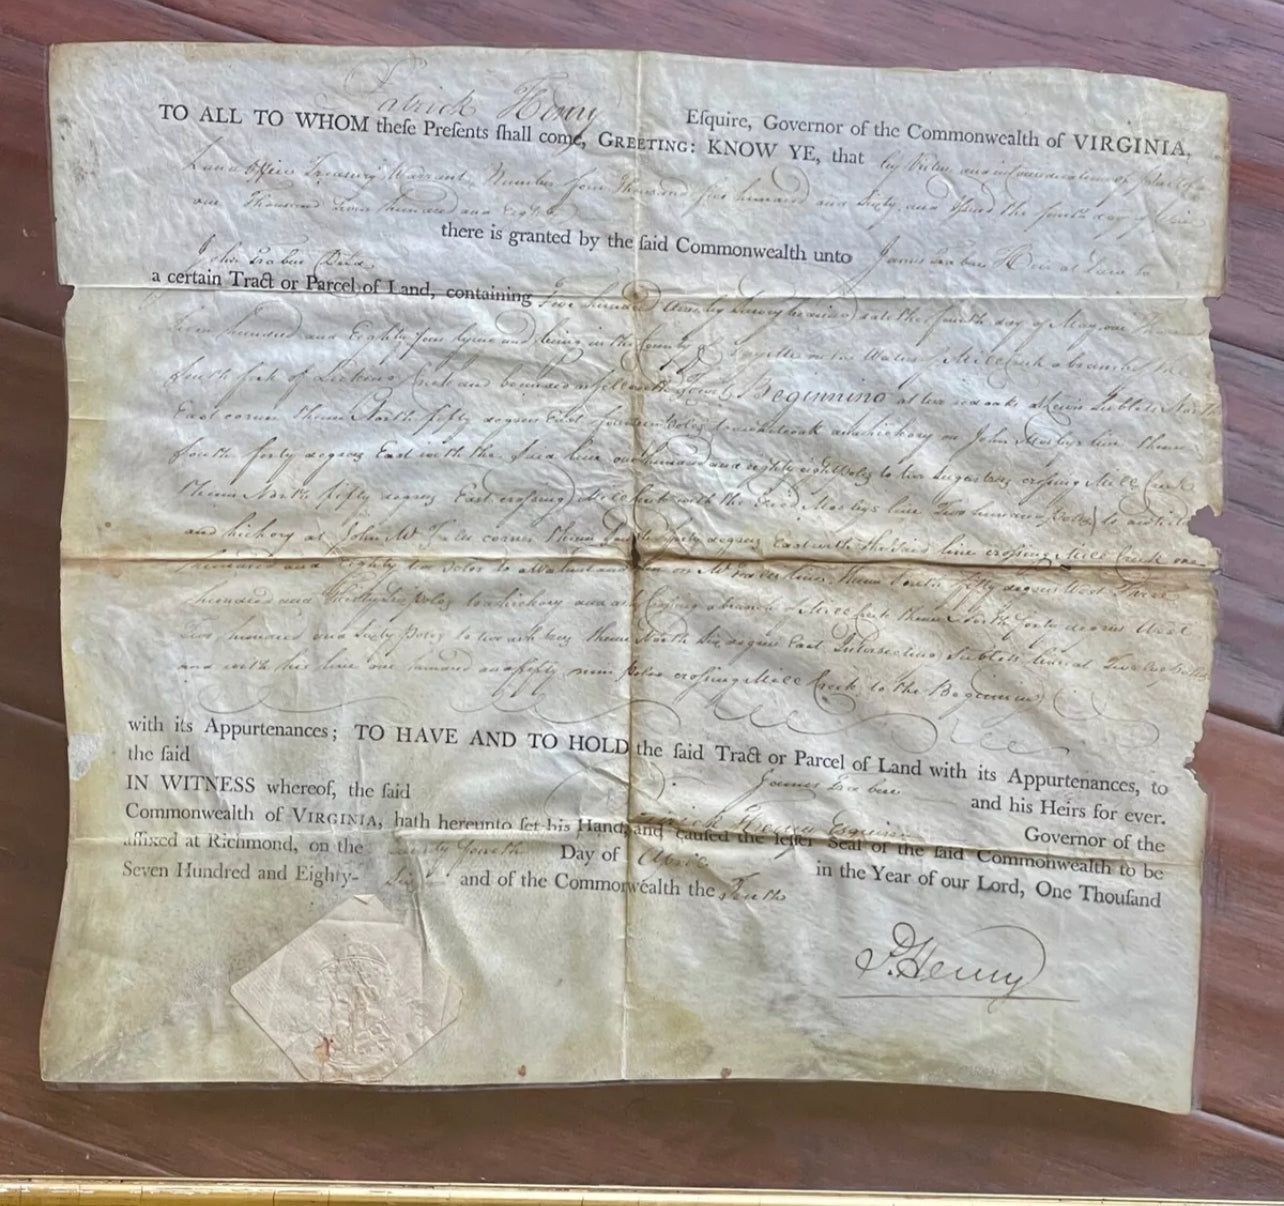 Patrick Henry Eſquire, Governor of the Commonwealth of VIRGINIA,
TO ALL TO WHOM theſe Preſents ſhall come, GREETING: KNOW YE, that by Virtue and in Consideration of part of a
Land Office Treasury Warrant Number four Thousand five hundred and Sixty and Issued the
one Thousand seven hundred and Eighty there is granted by the ſaid Commonwealth unto James Trabue Heir at Law to
John Trabue Decd.
a certain Tract or Parcel of Land, containing Five hundred Acres by Survey bearing date the fourth day of May one Thousand
Seven hundred and Eighty four lying and being in the County of Fayette on the Waters of Mill Creek a branch of the
South fork of Licking Creek and bounded as followeth (towit) Beginning at two red oaks at Lewis North
East corner thence North fifty degrees East fourteen Poles to white oak and hickory on John Mosbys line thence
South forty degrees East with the said line one hundred and eighty eight Poles to two Sugar trees crossing Mill Creek
thence North fifty degrees East crossing Mill Creek with the said Mosbys line Two hundred Poles to
and hickory at John corner thence South forty degrees East with the said line crossing Mill Creek one
hundred and Eighty Poles to a Walnut and on line thence South fifty degrees West Three
hundred and Thirty Poles to a hickory and ash crossing a branch of Mill Creek thence North forty degrees West
Two hundred and Sixty Poles to two ash trees thence North six degrees East Intersecting line at Twelve Poles
and with his line one hundred and fifty nine Poles crossing Mill Creek to the Beginning
with its Appurtenances; TO HAVE AND TO HOLD the ſaid Tract or Parcel of Land with its Appurtenances, to
the ſaid James Trabue and his Heirs for ever.
IN WITNESS whereof, the ſaid Patrick Henry Esquire Governor of the
Commonwealth of VIRGINIA, hath hereunto ſet his Hand, and cauſed the leſſer Seal of the ſaid Commonwealth to be
affixed at Richmond, on the twenty fourth Day of April in the Year of our Lord, One Thouſand
Seven Hundred and Eighty- Six and of the Commonwealth the Tenth
P. Henry